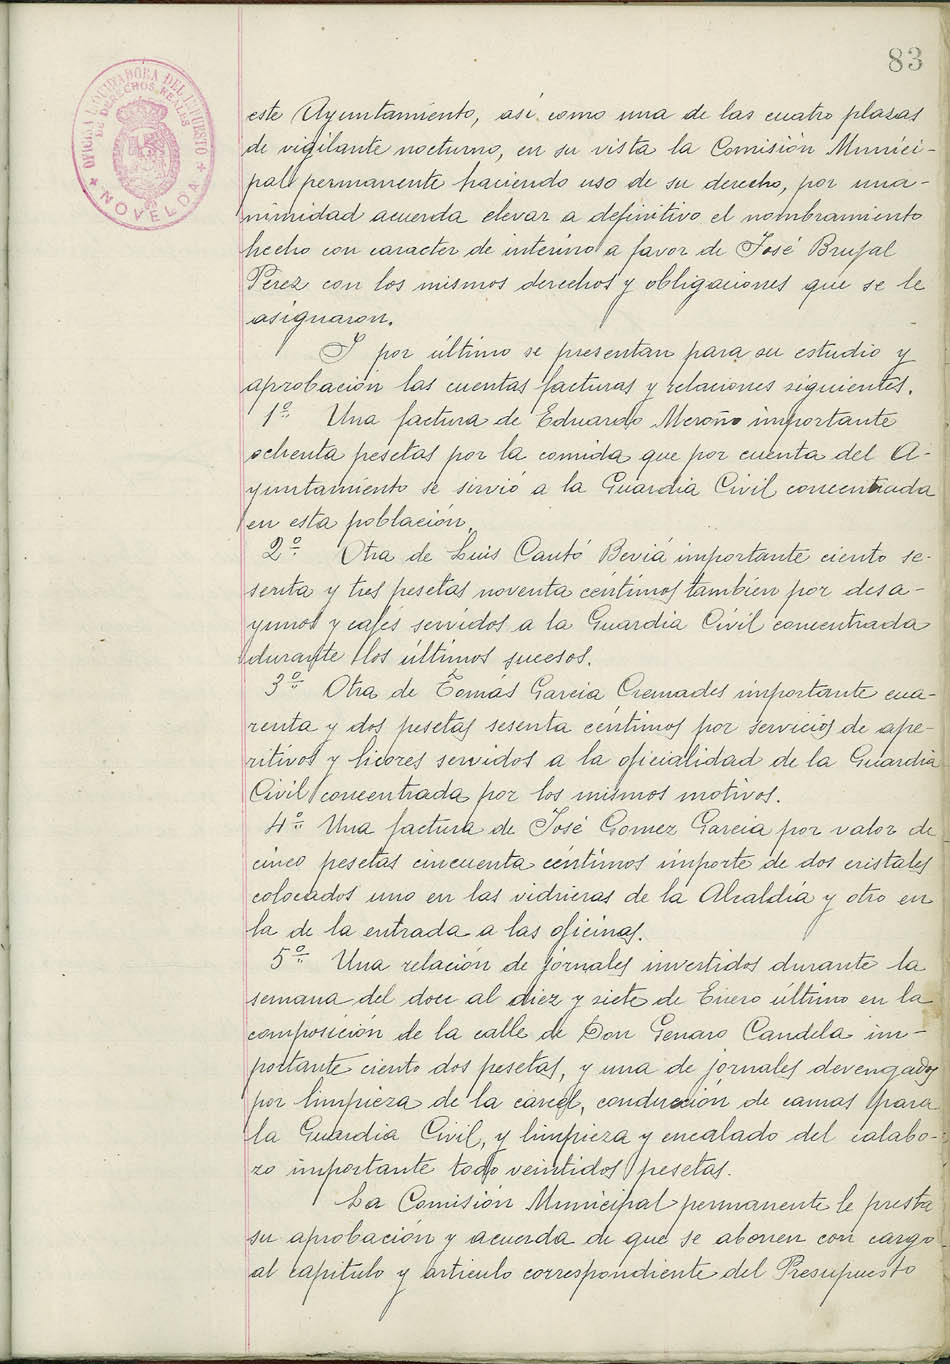 83
OFICINA LIQUIDADORA DEL IMPUESTO
DE DERECHOS REALES
NOVELDA
este Ayuntamiento, asi como una de las cuatro plazas
de vigilante nocturno, en su vista la Comisión Munici-
pal permanente haciendo uso de su derecho, por una-
nimidad acuerda elevar a definitivo el nombramiento
hecho con caracter de interino a favor de José Brufal
Perez con los mismos derechos y obligaciones que se le
asignaron.
Y por último se presentan para su estudio y
aprobación las cuentas facturas y relaciones siguientes.
1º Una factura de Eduardo Meroño importante
ochenta pesetas por la comida que por cuenta del A-
yuntamiento se sirvió a la Guardia Civil concentrada
en esta población.
2º Otra de Luis Cantó Beviá importante ciento se-
senta y tres pesetas noventa céntimos tambien por desa-
yunos y cafés servidos a la Guardia Civil concentrada
durante los últimos sucesos.
3º Otra de Tomás Garcia Cremades importante cua-
renta y dos pesetas sesenta céntimos por servicios de ape-
ritivos y licores servidos a la oficialidad de la Guardia
Civil concentrada por los mismos motivos.
4º Una factura de José Gomez Garcia por valor de
cinco pesetas cincuenta céntimos importe de dos cristales
colocados uno en las vidrieras de la Alcaldia y otro en
la de la entrada a las oficinas.
5º Una relación de jornales invertidos durante la
semana del doce al diez y siete de Enero último en la
composición de la calle de Don Genaro Candela im-
portante ciento dos pesetas, y una de jornales devengados
por limpieza de la carcel, conducción de camas para
la Guardia Civil, y limpieza y encalado del calabo-
zo importante todo veintidos pesetas.
La Comisión Municipal permanente le presta
su aprobación y acuerda de que se abonen con cargo
al capitulo y articulo correspondiente del Presupuesto